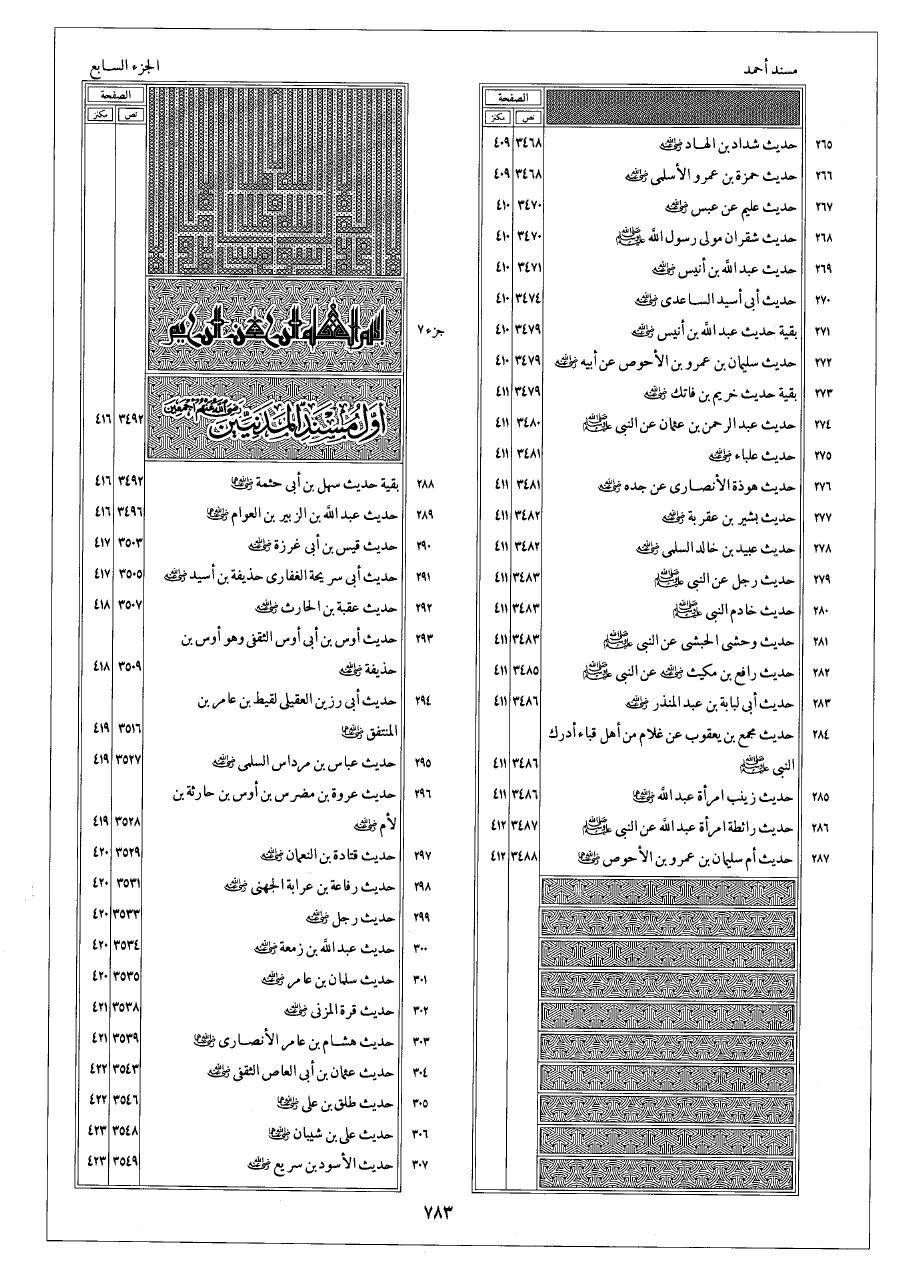 مسند أحمد
الجزء السابع
الصفحة
نص مكنز
٢٦٥ حديث شداد بن الهاد رضي الله عنه ٣٤٦٨ ٤٠٩
٢٦٦ حديث حمزة بن عمرو الأسلمى رضي الله عنه ٣٤٦٨ ٤٠٩
٢٦٧ حديث عليم عن عبس رضي الله عنه ٣٤٧٠ ٤١٠
٢٦٨ حديث شقران مولى رسول الله ﷺ ٣٤٧٠ ٤١٠
٢٦٩ حديث عبد الله بن أنيس رضي الله عنه ٣٤٧١ ٤١٠
٢٧٠ حديث أبى أسيد الساعدى رضي الله عنه ٣٤٧٤ ٤١٠
٢٧١ بقية حديث عبد الله بن أنيس رضي الله عنه ٣٤٧٩ ٤١٠
٢٧٢ حديث سليمان بن عمرو بن الأحوص عن أبيه رضي الله عنه ٣٤٧٩ ٤١٠
٢٧٣ بقية حديث خريم بن فاتك رضي الله عنه ٣٤٧٩ ٤١١
٢٧٤ حديث عبد الرحمن بن عثمان عن النبى ﷺ ٣٤٨٠ ٤١١
٢٧٥ حديث علباء رضي الله عنه ٣٤٨١ ٤١١
٢٧٦ حديث هوذة الأنصارى عن جده رضي الله عنه ٣٤٨١ ٤١١
٢٧٧ حديث بشير بن عقربة رضي الله عنه ٣٤٨٢ ٤١١
٢٧٨ حديث عبيد بن خالد السلمى رضي الله عنه ٣٤٨٢ ٤١١
٢٧٩ حديث رجل عن النبى ﷺ ٣٤٨٣ ٤١١
٢٨٠ حديث خادم النبى ﷺ ٣٤٨٣ ٤١١
٢٨١ حديث وحشى الحبشى عن النبى ﷺ ٣٤٨٣ ٤١١
٢٨٢ حديث رافع بن مكيث رضي الله عنه عن النبى ﷺ ٣٤٨٥ ٤١١
٢٨٣ حديث أبى لبابة بن عبد المنذر رضي الله عنه ٣٤٨٦ ٤١١
٢٨٤ حديث مجمع بن يعقوب عن غلام من أهل قباء أدرك
النبى ﷺ ٣٤٨٦ ٤١١
٢٨٥ حديث زينب امرأة عبد الله رضي الله عنها ٣٤٨٦ ٤١١
٢٨٦ حديث رائطة امرأة عبد الله عن النبى ﷺ ٣٤٨٧ ٤١٢
٢٨٧ حديث أم سليمان بن عمرو بن الأحوص رضي الله عنها ٣٤٨٨ ٤١٢
الصفحة
نص مكنز
جزء ٧ بسم الله الرحمن الرحيم
أول مسند المدنيين رضي الله عنهم أجمعين ٣٤٩٢ ٤١٦
٢٨٨ بقية حديث سهل بن أبى حثمة رضي الله عنهما ٣٤٩٢ ٤١٦
٢٨٩ حديث عبد الله بن الزبير بن العوام رضي الله عنهما ٣٤٩٦ ٤١٦
٢٩٠ حديث قيس بن أبى غرزة رضي الله عنه ٣٥٠٣ ٤١٧
٢٩١ حديث أبى سريحة الغفارى حذيفة بن أسيد رضي الله عنه ٣٥٠٥ ٤١٧
٢٩٢ حديث عقبة بن الحارث رضي الله عنه ٣٥٠٧ ٤١٨
٢٩٣ حديث أوس بن أبى أوس الثقفى وهو أوس بن
حذيفة رضي الله عنه ٣٥٠٩ ٤١٨
٢٩٤ حديث أبى رزين العقيلى لقيط بن عامر بن
المنتفق رضي الله عنه ٣٥١٦ ٤١٩
٢٩٥ حديث عباس بن مرداس السلمى رضي الله عنه ٣٥٢٧ ٤١٩
٢٩٦ حديث عروة بن مضرس بن أوس بن حارثة بن
لأم رضي الله عنه ٣٥٢٨ ٤١٩
٢٩٧ حديث قتادة بن النعمان رضي الله عنه ٣٥٢٩ ٤٢٠
٢٩٨ حديث رفاعة بن عرابة الجهنى رضي الله عنه ٣٥٣١ ٤٢٠
٢٩٩ حديث رجل رضي الله عنه ٣٥٣٣ ٤٢٠
٣٠٠ حديث عبد الله بن زمعة رضي الله عنه ٣٥٣٤ ٤٢٠
٣٠١ حديث سلمان بن عامر رضي الله عنه ٣٥٣٥ ٤٢٠
٣٠٢ حديث قرة المزنى رضي الله عنه ٣٥٣٨ ٤٢١
٣٠٣ حديث هشام بن عامر الأنصارى رضي الله عنهما ٣٥٣٩ ٤٢١
٣٠٤ حديث عثمان بن أبى العاص الثقفى رضي الله عنه ٣٥٤٣ ٤٢٢
٣٠٥ حديث طلق بن على رضي الله عنهما ٣٥٤٦ ٤٢٢
٣٠٦ حديث على بن شيبان رضي الله عنه ٣٥٤٨ ٤٢٣
٣٠٧ حديث الأسود بن سريع رضي الله عنه ٣٥٤٩ ٤٢٣
٧٨٣